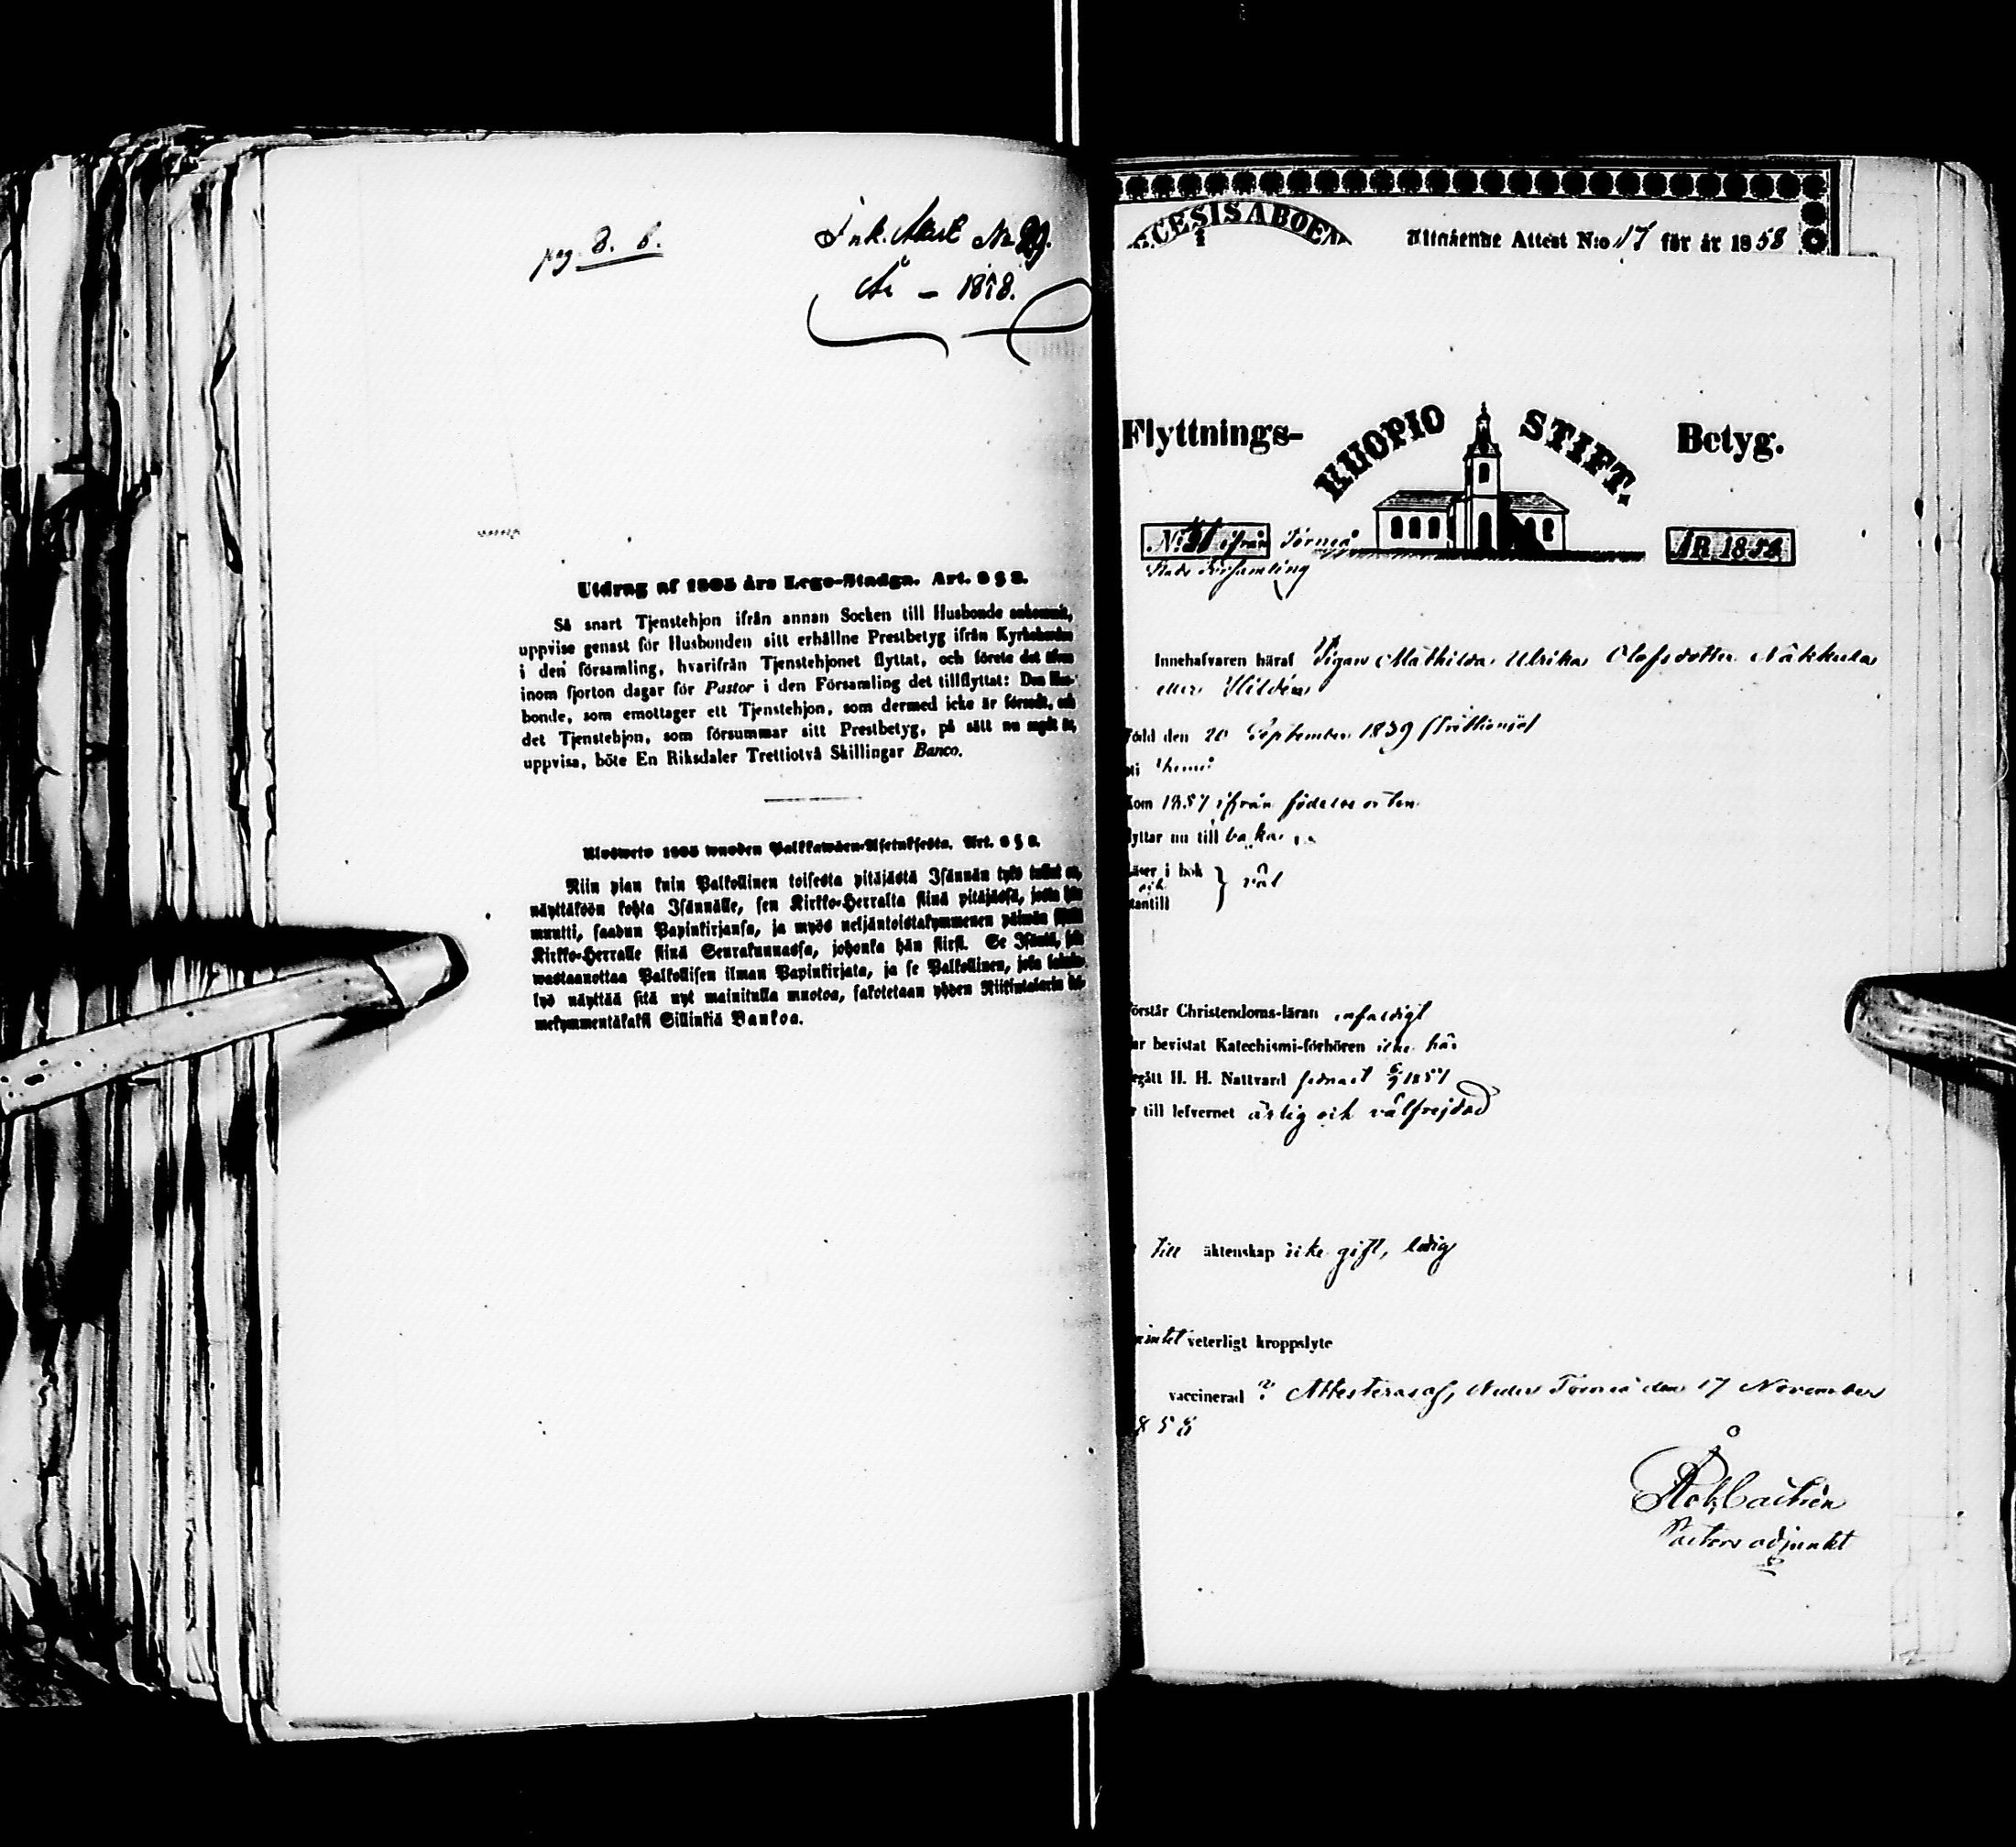 pag. 8. 6.
Ink. Attest No 29.
År – 1858.
Utdrag af 1805 års Lego-Stadga. Art. 8 § 3.
Så snart Tjenstehjon ifrån annan Socken till Husbonde ankommit,
uppvise genast för Husbonden sitt erhållne Prestbetyg ifrån Kyrkoherden
i den församling, hvarifrån Tjenstehjonet flyttat, och förete det äfven
inom fjorton dagar för Pastor i den Församling det tillflyttat: Den Hus-
bonde, som emottager ett Tjenstehjon, som dermed icke är försedt, och
det Tjenstehjon, som försummar sitt Prestbetyg, på sätt nu sagdt är,
uppvisa, böte En Riksdaler Trettiotvå Skillingar Banco.
Ulosweto 1805 wuoden Palkkawäen-Asetuksesta. Art. 8 § 3.
Niin pian kuin Palkollinen toisesta pitäjästä Isännän tykö tullut on,
näyttäköön kohta Isännälle, sen Kirkko-Herralta siinä pitäjässä, josta hän
muutti, saadun Papinkirjansa, ja myös neljäntoistakymmenen päiwän sisällä
Kirkko-Herralle siinä Seurakunnassa, johonka hän siirsi. Se Isäntä, joka
wastaanottaa Palkollisen ilman Papinkirjata, ja se Palkollinen, joka laimin-
lyö näyttää sitä nyt mainitulla muotoa, sakotetaan yhden Riikintalarin kol-
mekymmentäkaksi Sillinkiä Bankoa.
ECESIS ABOEN
Utgående Attest N:o 17 för år 1858
Flyttnings- KUOPIO STIFT. Betyg.
ifrån Torneå ÅR 1858
Stads Församling
Innehafvaren häraf Pigan Mathilda Ulrika Olofsdotter Näkkula
eller Hildén
född den 20 September 1839
i Kemi
Kom 1857 ifrån födelse orten
flyttar nu till baka
läser i bok
och } väl
utantill
förstår Christendoms-läran enfaldigt
har bevistat Katechismi-förhören icke här
begått H. H. Nattvard sednast 6/9 1857
till lefvernet ärlig och välfrejdad
till äktenskap icke gift, ledig
intet veterligt kroppslyte
vaccinerad ? Attesteras af, Neder Torneå den 17 November
858
Pastors adjunkt